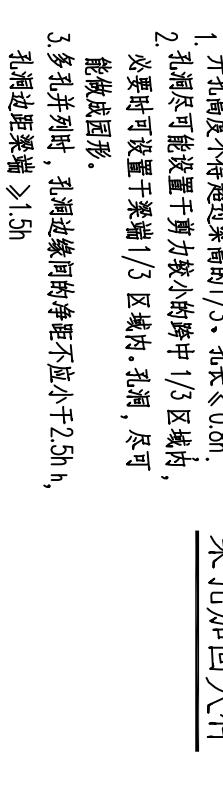 1. 开孔高度不得超过梁高的1/3。孔长≤0.8h.
2. 孔洞尽可能设置于剪力较小的跨中 1/3 区域内,
必要时可设置于梁端1/3 区域内。孔洞, 尽可
能做成园形。
3. 多孔并列时, 孔洞边缘间的净距不应小于2.5h h,
孔洞边距梁端 ≥1.5h